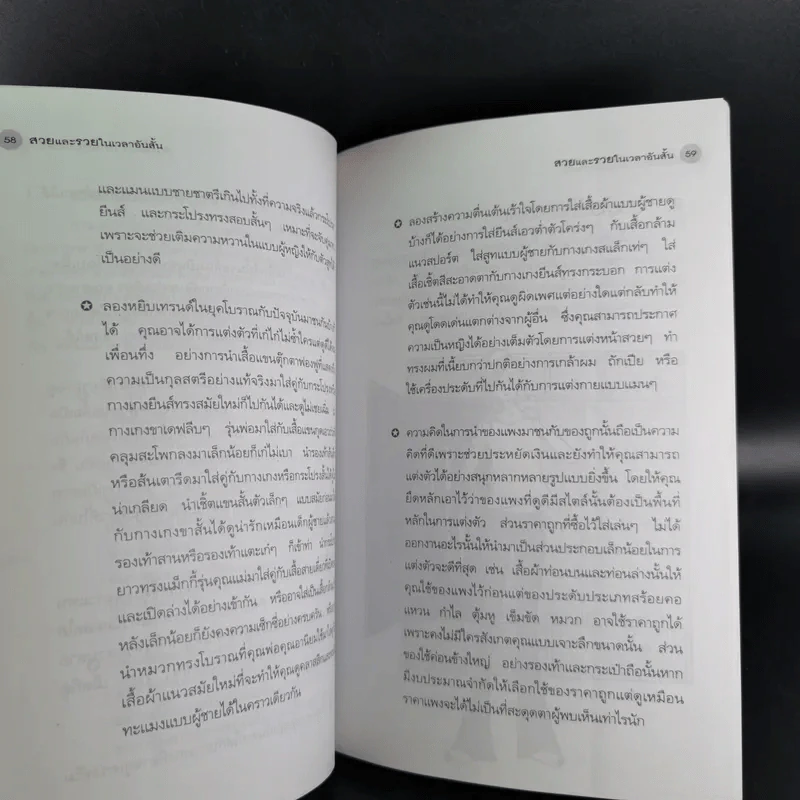 58 สวยและรวยในเวลาอันสั้น
และแมนแบบชายชาตรีเกินไปทั้งที่ความจริงแล้วกระโปรง
ยีนส์ และกระโปรงทรงสอบสั้นๆ เหมาะที่จะจับคู่
เพราะจะช่วยเติมความหวานในแบบผู้หญิงให้กับตัวคุณได้
เป็นอย่างดี
ลองหยิบเทรนด์ในยุคโบราณกับปัจจุบันมาชนกัน
ได้ คุณอาจได้การแต่งตัวที่เก๋ไก๋ไม่ซ้ำใคร
เพื่อนทึ่ง อย่างการนำเสื้อแขนตุ๊กตาฟองฟูที่แสดง
ความเป็นกุลสตรีอย่างแท้จริงมาใส่คู่กับกระโปรง
กางเกงยีนส์ทรงสมัยใหม่ก็ไปกันได้และดูไม่เชย
กางเกงขาเดฟลีบๆ รุ่นพ่อมาใส่กับเสื้อแขนกุด
คลุมสะโพกลงมาเล็กน้อยก็เก๋ไม่เบา นำรองเท้าส้น
หรือส้นเตารีดมาใส่คู่กับกางเกงหรือกระโปรงสั้น
น่าเกลียด นำเชิ้ตแขนสั้นตัวเล็กๆ แบบสมัยก่อน
กับกางเกงขาสั้นได้ดูน่ารักเหมือนเด็กผู้ชายแล้ว
รองเท้าสานหรือรองเท้าแตะเก๋ๆ ก็เข้าท่า
ยาวทรงแม็กกี้รุ่นคุณแม่มาใส่คู่กับเสื้อสายเดี่ยว
และเปิดล่างได้อย่างเข้ากัน หรืออาจใส่เป็นเสื้อ
หลังเล็กน้อยก็ยังคงความเซ็กซี่อย่างครบครัน
นำหมวกทรงโบราณที่คุณพ่อคุณอานิยมใช้
เสื้อผ้าแนวสมัยใหม่ที่จะทำให้คุณดูคลาสสิก
ทะแมงแบบผู้ชายได้ในคราวเดียวกัน
สวยและรวยในเวลาอันสั้น 59
ลองสร้างความตื่นเต้นเร้าใจโดยการใส่เสื้อผ้าแบบผู้ชายดู
บ้างก็ได้อย่างการใส่ยีนส์เอวต่ำตัวโคร่งๆ กับเสื้อกล้าม
แนวสปอร์ต ใส่สูทแบบผู้ชายกับกางเกงสแล็กเท่ๆ ใส่
เสื้อเชิ้ตสีสะอาดตากับกางเกงยีนส์ทรงกระบอก การแต่ง
ตัวเช่นนี้ไม่ได้ทำให้คุณดูผิดเพศแต่อย่างใดแต่กลับทำให้
คุณดูโดดเด่นแตกต่างจากผู้อื่น ซึ่งคุณสามารถประกาศ
ความเป็นหญิงได้อย่างเต็มตัวโดยการแต่งหน้าสวยๆ ทำ
ทรงผมที่เนี้ยบกว่าปกติอย่างการเกล้าผม ถักเปีย หรือ
ใช้เครื่องประดับที่ไปกันได้กับการแต่งกายแบบแมนๆ
ความคิดในการนำของแพงมาชนกับของถูกนั้นถือเป็นความ
คิดที่ดีเพราะช่วยประหยัดเงินและยังทำให้คุณสามารถ
แต่งตัวได้อย่างสนุกหลากหลายรูปแบบยิ่งขึ้น โดยให้คุณ
ยึดหลักเอาไว้ว่าของแพงที่ดูดีมีสไตล์นั้นต้องเป็นพื้นที่
หลักในการแต่งตัว ส่วนราคาถูกที่ซื้อไว้ใส่เล่นๆ ไม่ได้
ออกงานอะไรนั้นให้นำมาเป็นส่วนประกอบเล็กน้อยในการ
แต่งตัวจะดีที่สุด เช่น เสื้อผ้าท่อนบนและท่อนล่างนั้นให้
คุณใช้ของแพงไว้ก่อนแต่ของประดับประเภทสร้อยคอ
แหวน กำไล ตุ้มหู เข็มขัด หมวก อาจใช้ราคาถูกได้
เพราะคงไม่มีใครสังเกตคุณแบบเจาะลึกขนาดนั้น ส่วน
ของใช้ค่อนข้างใหญ่ อย่างรองเท้าและกระเป๋าถือนั้นหาก
มีงบประมาณจำกัดให้เลือกใช้ของราคาถูกแต่ดูเหมือน
ราคาแพงจะได้ไม่เป็นที่สะดุดตาผู้พบเห็นเท่าไรนัก